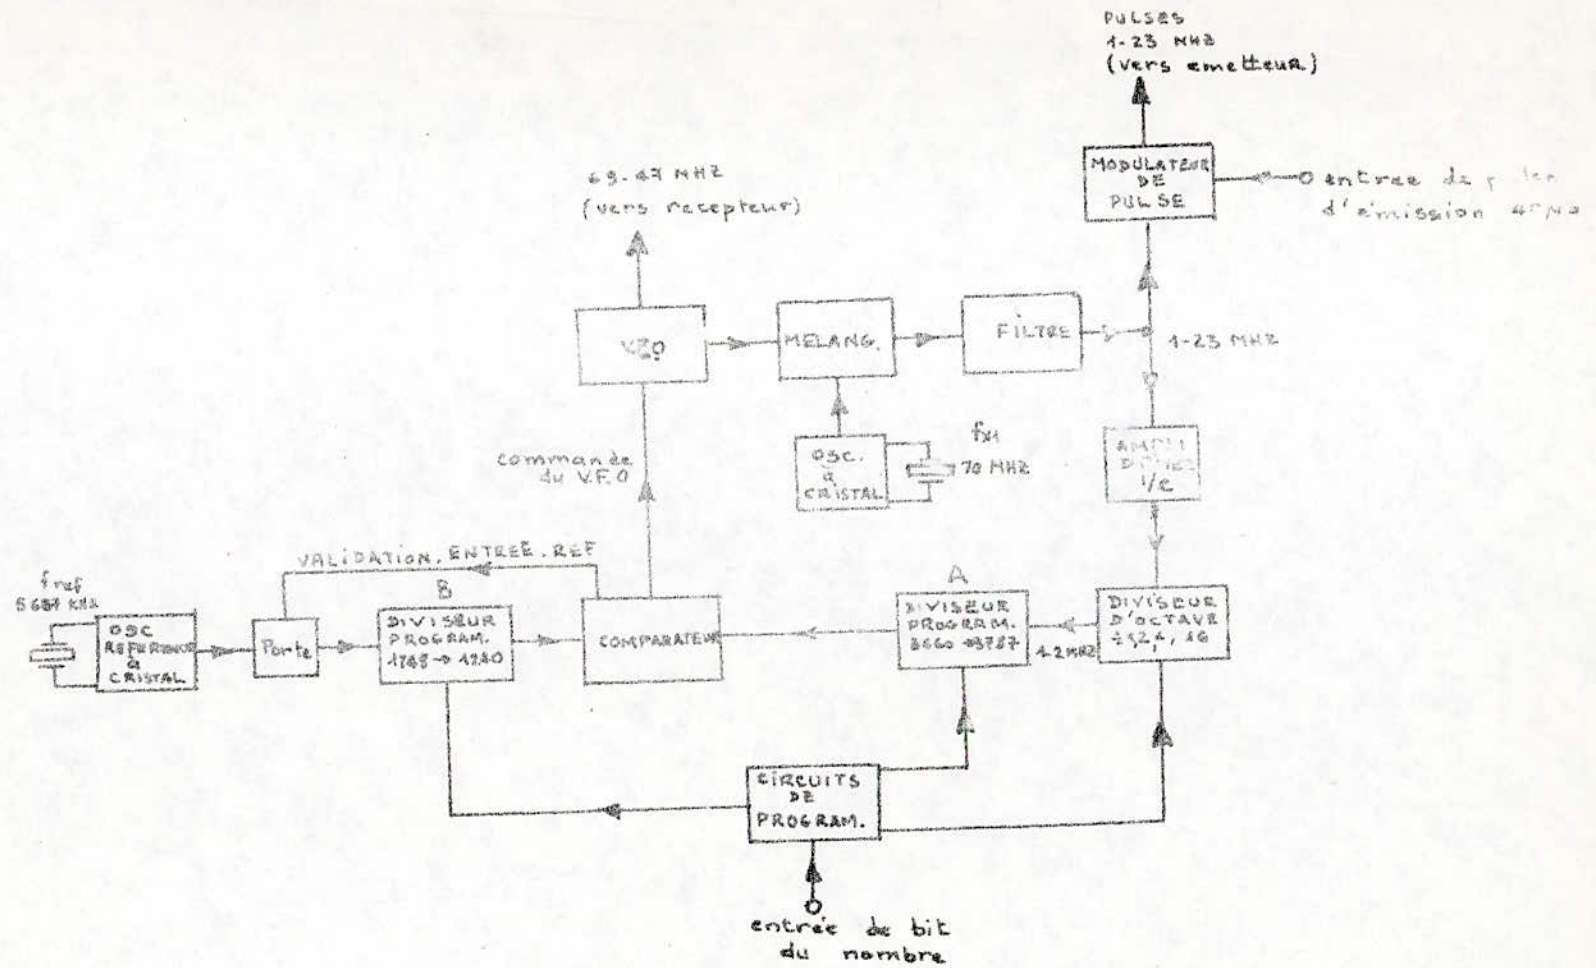 PULSES
1-23 MHZ
(vers emetteur)
MODULATEUR
DE
PULSE
entree de
d'émission
69-47 MHZ
(vers recepteur)
MELANG.
FILTRE
1-23 MHZ
OSC.
à
CRISTAL
70 MHZ
1/2
commande
du V.F.O
VALIDATION.ENTREE.REF
f ref
KHz
OSC
REFERENCE
à
CRISTAL
Porte
B
DIVISEUR
PROGRAM.
COMPARATEUR
A
DIVISEUR
PROGRAM.
1-2 MHZ
DIVISEUR
D'OCTAVE
CIRCUITS
DE
PROGRAM.
entrée de bit
du nombre